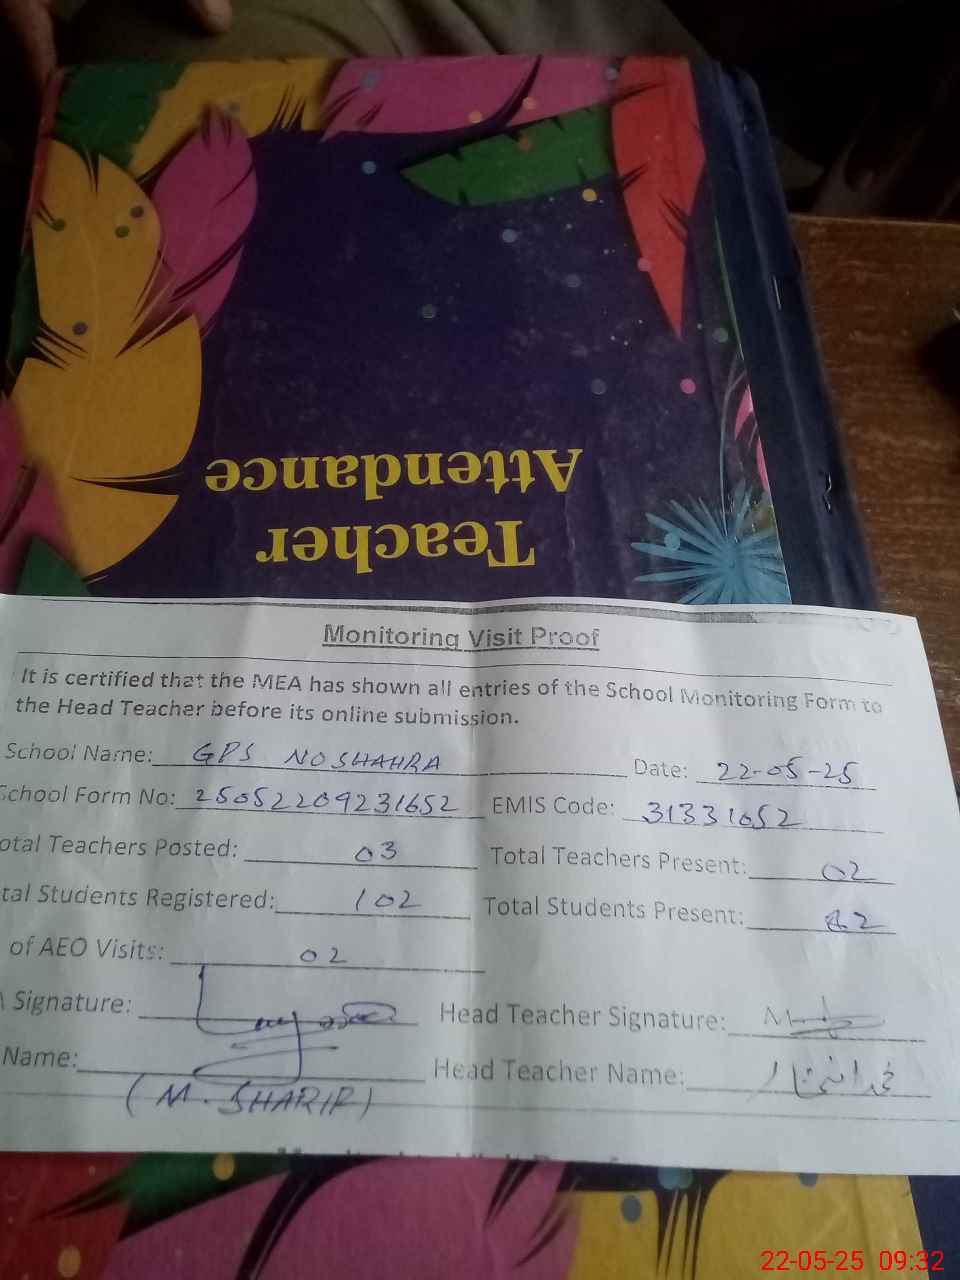 Teacher
Attendance
Monitoring Visit Proof
It is certified that the MEA has shown all entries of the School Monitoring Form to
the Head Teacher before its online submission.
School Name: GPS NOSHAHRA Date: 22-05-25
School Form No: 25052209231652 EMIS Code: 31331052
otal Teachers Posted: 03 Total Teachers Present: 02
tal Students Registered: 102 Total Students Present: 82
of AEO Visits: 02
A Signature: Head Teacher Signature:
Name: (M. SHARIF) Head Teacher Name:
22-05-25 09:32